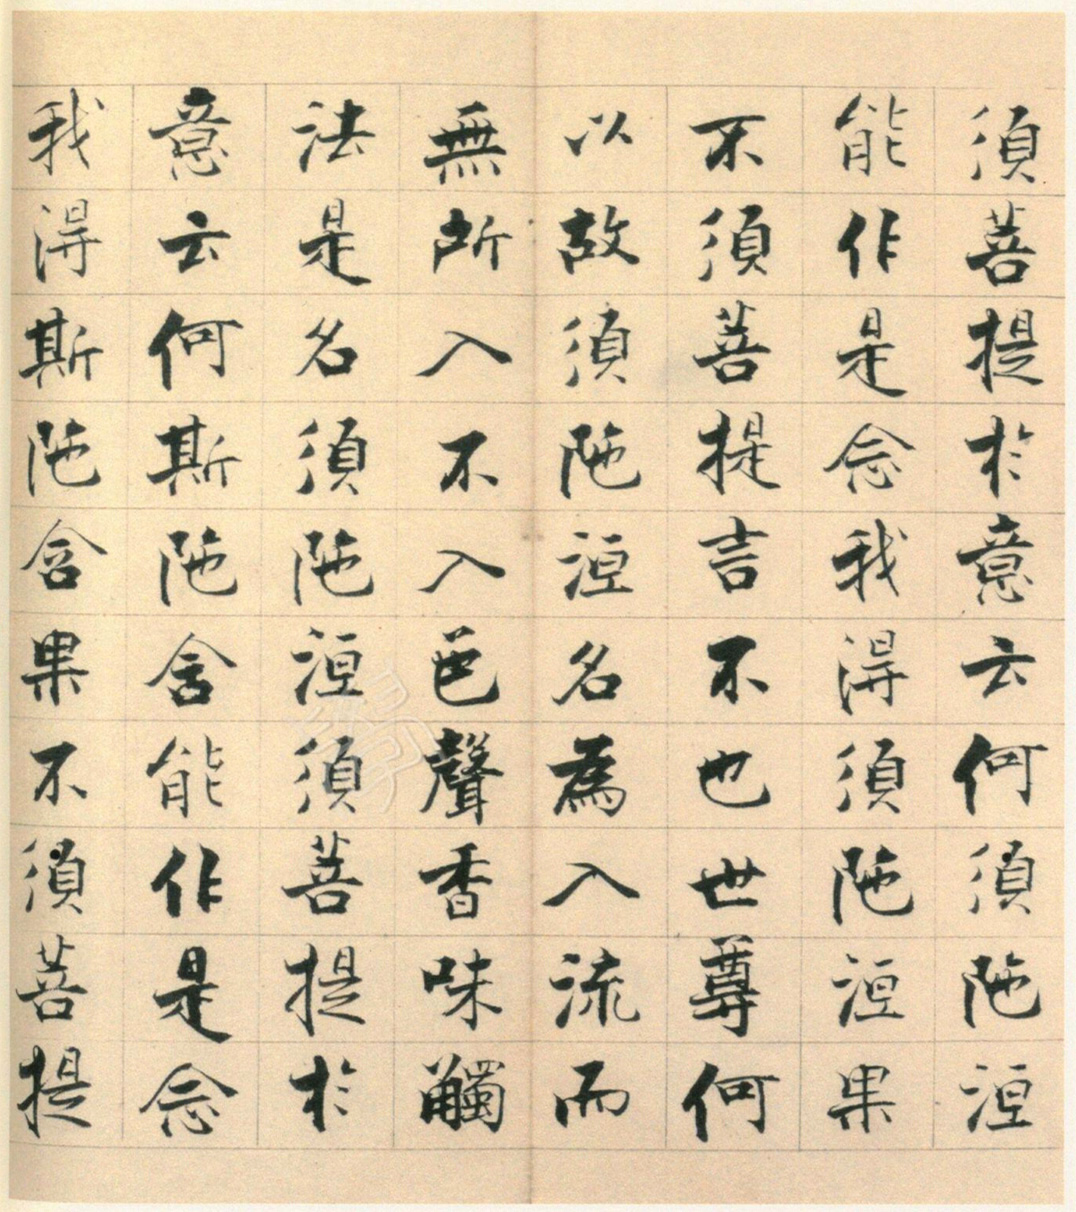 須菩提於意云何須陁洹
能作是念我得須陁洹果
不須菩提言不也世尊何
以故須陁洹名為入流而
無所入不入色聲香味觸
法是名須陁洹須菩提於
意云何斯陁含能作是念
我得斯陁含果不須菩提